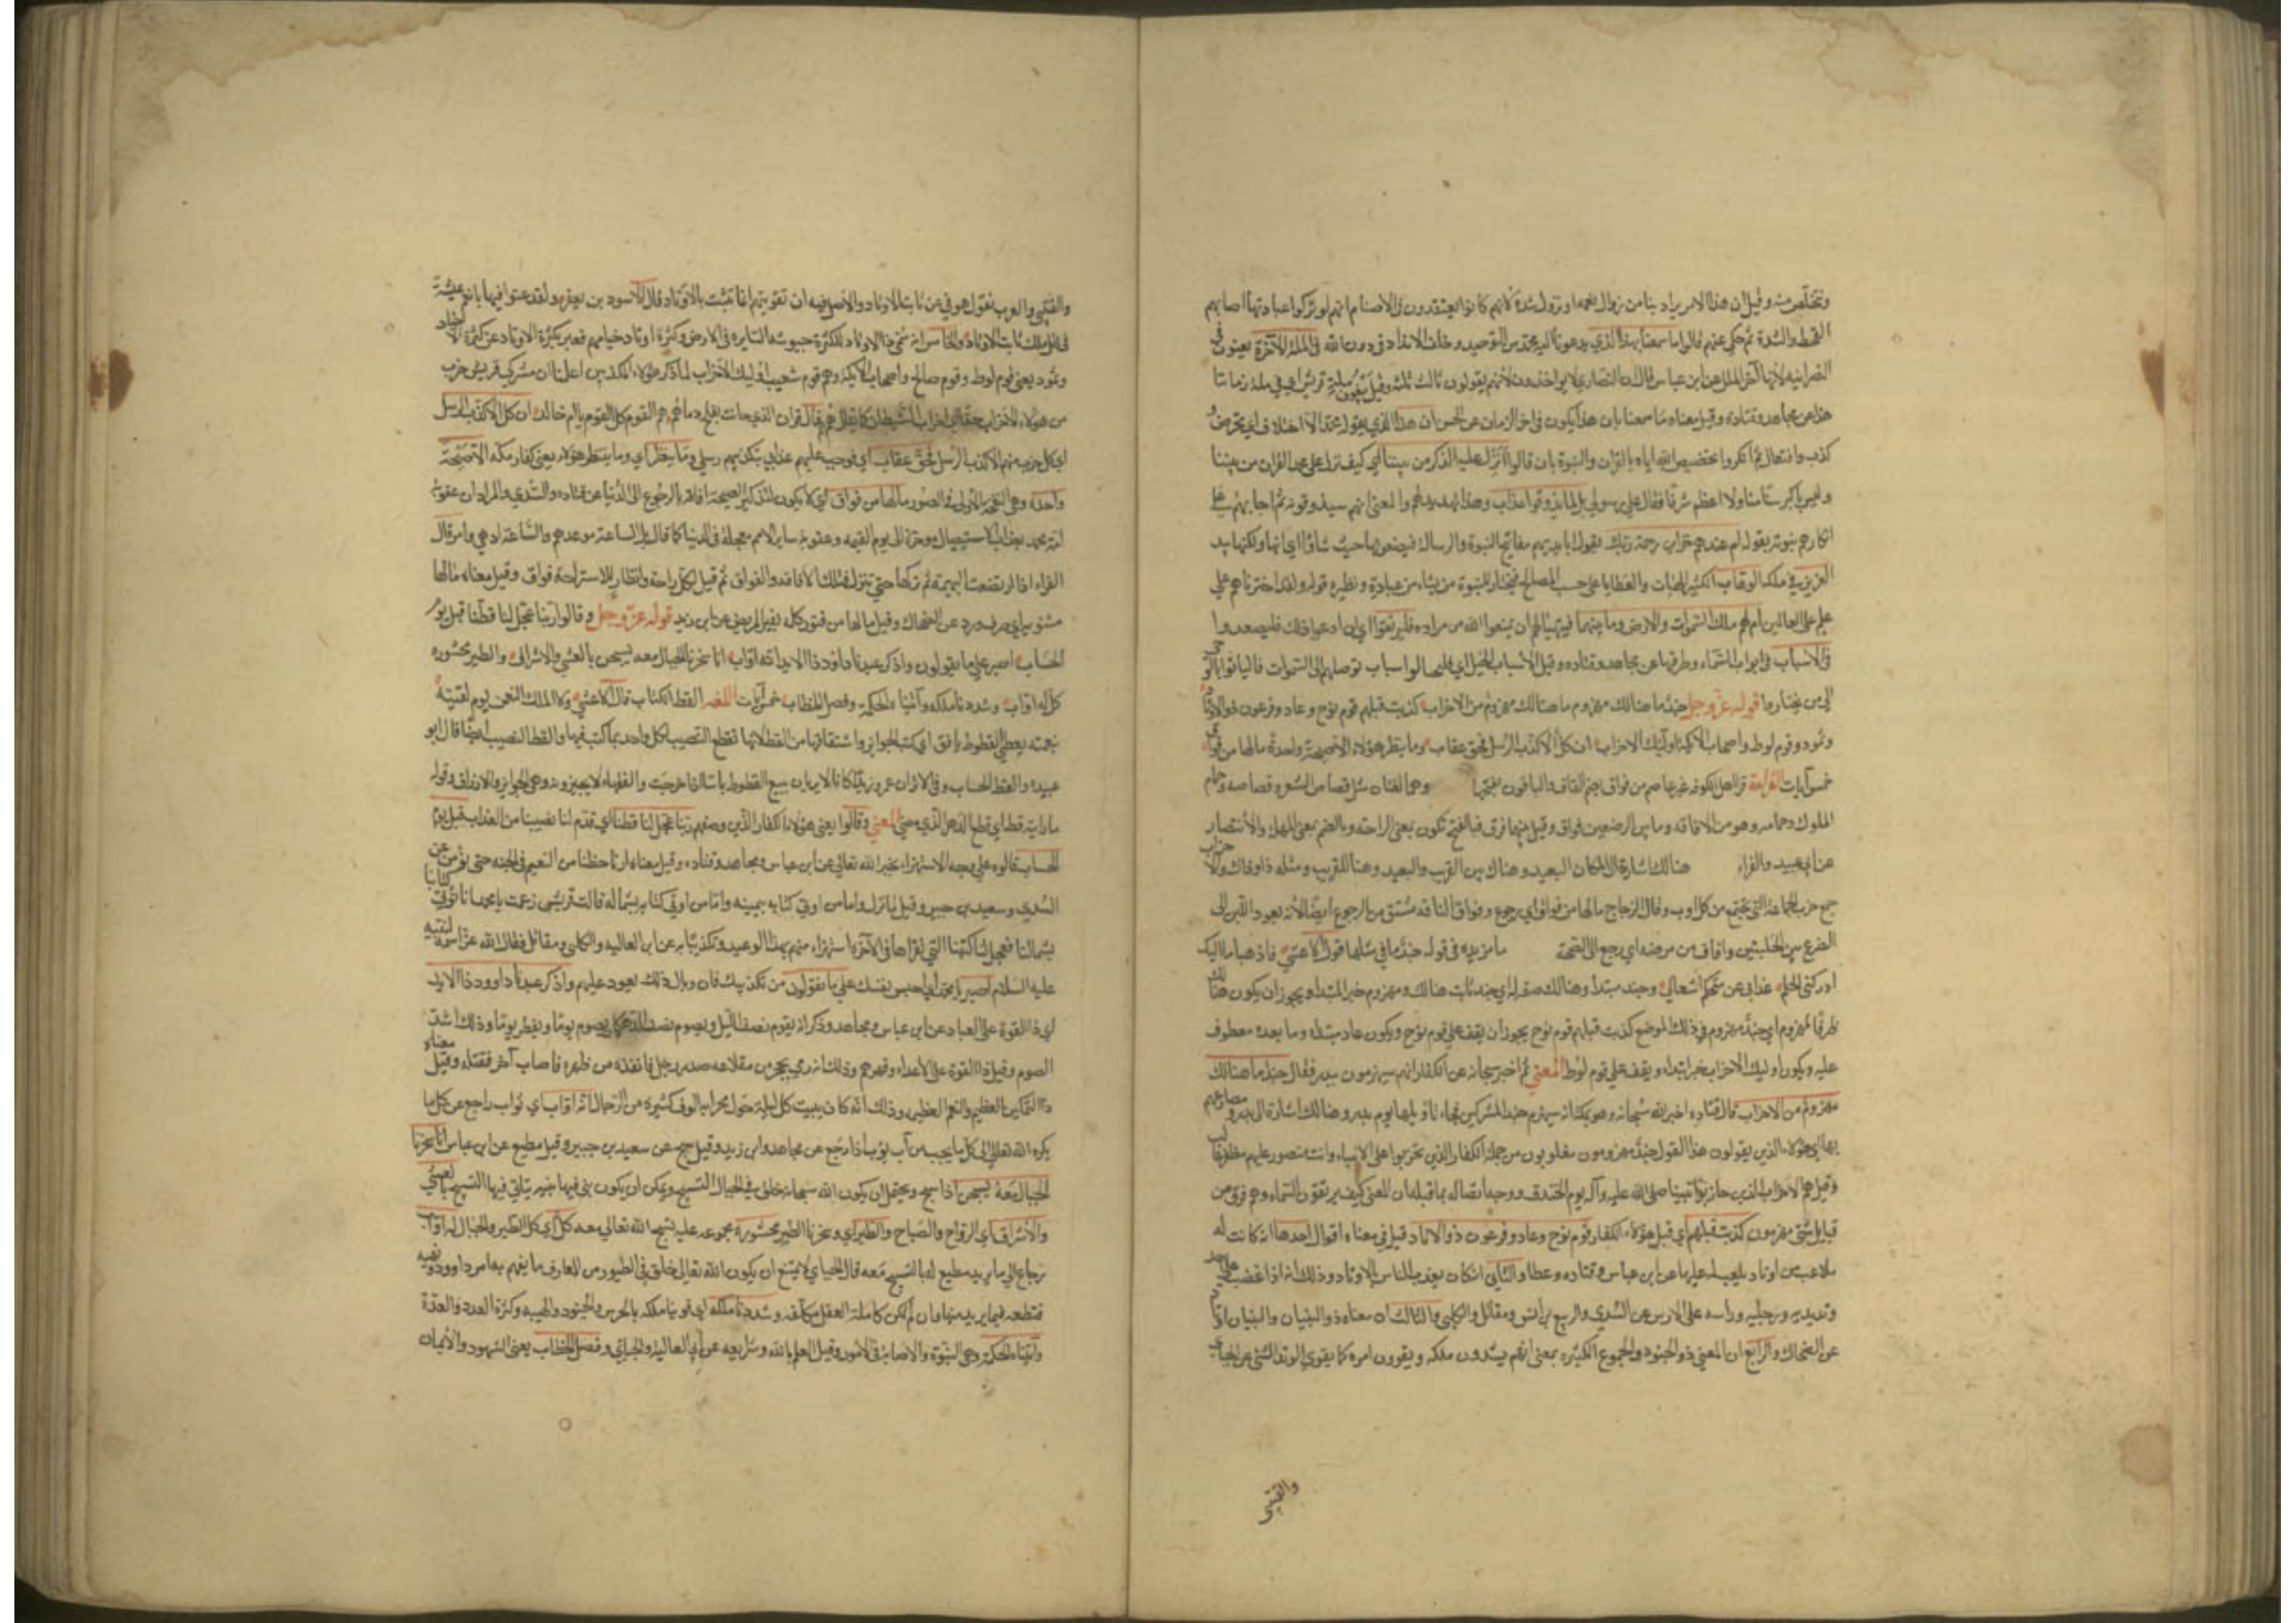 ونتخلص منه وقيل ان هذا الامر يراد بنا من زوال نعمه او نزول شدة لانهم كانوا يعتقدون في الاصنام انهم لو تركوا عبادتها اصابهم
القحط والشدة ثم حكى عنهم قالوا ما سمعنا بهذا الذي يدعونا اليه محمد من التوحيد وخلع الانداد من دون الله في الملة الآخرة يعنون في
النصرانيه لانها آخر الملل عن ابن عباس قال ان النصارى لا يوحدون لانهم يقولون ثالث ثلثة وقيل يعنون ملة قريش اي في ملة زماننا
هذا عن مجاهد وقتاده وقيل معناه ما سمعنا بان هذا يكون في اخر الزمان عن الحسن ان هذا الذي يقول محمد الا اختلاق اي تخرص و
كذب وافتعال ثم انكروا تخصيص الله اياه بالقران والنبوة بان قالوا أأنزل عليه الذكر من بيننا اي كيف نزل على محمد القران من بيننا
وليس باكبر سنا منا ولا اعظم شرفا فقال بل لما يذوقوا عذاب وهذا تهديد لهم والمعنى انهم سيذوقونه ثم اجابهم على
انكارهم نبوته بقوله ام عندهم خزاين رحمة ربك يقول ابايديهم مفاتيح النبوة والرسالة فيضعونها حيث شاؤا اي انها ولكنها بيد
العزيز في ملكه الوهاب الكثير الهبات والعطايا على حسب المصالح فيختار للنبوة من يشاء من عباده ونظيره قوله ولقد اخترناهم على
علم على العالمين ام لهم ملك السموات والارض وما بينهما فيتهيأ لهم ان يمنعوا الله من مراده فليرتقوا اي ان ادعوا ذلك فليصعدوا
في الاسباب في ابواب السماء وطرقها عن مجاهد وقتاده وقيل الأسباب الحيل اي فليحتالوا اسباب توصلهم الى السموات فاليأتوا بالوحي
الى من يختاروا قوله عز وجل جند ما هنالك مهزوم من الاحزاب كذبت قبلهم قوم نوح وعاد وفرعون ذوالاوتاد
وثمود وقوم لوط واصحاب الايكة اوليك الاحزاب ان كل الا كذب الرسل فحق عقاب وما ينظر هؤلاء الا صيحة واحدة ما لها من فواق
خمس آيات القراءة قرا اهل الكوفه غير عاصم من فواق بضم الفاء والباقون بفتحها وهما لغتان مثل قصاص الشعر وقصاصه وجمام
الملوك وجمامه وهو من الافاقه وما بين الرضعين فواق وقيل بينهما فرق فبالفتح تكون بمعنى الراحة وبالضم بمعنى المهلة والأنتضار
عن ابي عبيده والفراء هنالك اشارة الى المكان البعيد وهناك بين القريب والبعيد وهنا للقريب ومثله ذا وذاك والاحزاب
جمع حزب الجماعة التي تجتمع من كل اوب وقال الزجاج ما لها من فواق اي رجوع وفواق الناقه مشتق من الرجوع ايضا لأنه يعود اللبن الى
الضرع بين الحلبتين وافاق من مرضه اي رجع الى الصحة ما مزيدة في قوله جند ما في مثلها قول الاعشى فاذهبا ما اليك
ادركني الحلم عداني عن هيجكم اشغالي وجند مبتدأ وهنالك صفه له اي جند ثابت هنالك ومهزوم خبر المبتدا ويجوز ان يكون هنالك
ظرفا لمهزوم اي جند مهزوم في ذلك الموضع كذبت قبلهم قوم نوح يجوز ان يقف على قوم نوح ويكون عاد مبتدا وما بعده معطوف
عليه ويكون اوليك الاحزاب خبر ابتداء ويقف على قوم لوط المعنى ثم اخبر سبحانه عن الكفار انهم سيهزمون ببدر فقال جند ما هنالك
مهزوم من الاحزاب قال قتاده اخبر الله سبحانه وهو بمكة انه سيهزم جند المشركين فجاء تاويلها يوم بدر وهنالك اشارة الى بدر ومصارعهم
بها اي هؤلاء الذين يقولون هذا القول جند مهزومون مغلوبون من جملة الكفار الذين تحزبوا على الانبياء وانت منصور عليهم مظفر غالب
وقيل هم الاحزاب الذين حاربوا نبينا صلى الله عليه وآله يوم الخندق ووجه اتصاله بما قبله ان المعنى كيف يرتقون السماء وهم فرق من
قبايل شتى مهزمون كذبت قبلهم اي قبل هؤلاء الكفار قوم نوح وعاد وفرعون ذو الاوتاد قيل في معناه اقوال احدها انه كانت له
ملاعب من اوتاد يلعب له عليها عن ابن عباس وقتاده وعطا والثاني انه كان يعذب الناس بالاوتاد وذلك انه اذا غضب على احد
وتد يديه ورجليه وراسه على الارض عن السدي والربيع بن انس ومقاتل والكلبي والثالث ان معناه ذو البنيان والبنيان اوتاد
عن الضحاك والرابع ان المعنى ذو الجنود والجموع الكثيرة بمعنى انهم يشدون ملكه ويقوون امره كما يقوي الوتد الشئ عن الجبائي
والقتيبي
والقتيبي والعرب تقول هو في عز ثابت الاوتاد والاصل فيه ان بيوتهم انما تثبت بالاوتاد قال الاسود بن يعفر ولقد غنوا فيها بانعم عيشة
في ظل ملك ثابت الاوتاد والخامس انه سمي ذا الاوتاد لكثرة جيوشه السايره في الارض وكثرة اوتاد خيامهم فعبر بكثرة الاوتاد عن كثرة الاجناد
وثمود يعني قوم لوط وقوم صالح واصحاب الايكة وهم قوم شعيب اوليك الاحزاب لما ذكر هؤلاء المكذبين اعلمنا ان مشركي قريش حزب
من هؤلاء الاحزاب حقا اي احزاب الشيطان كما يقال هم هم قال فان الذي حانت بفلج دماءهم هم القوم كل القوم يا ام خالد ان كل الا كذب الرسل
اي كل حزب منهم الا كذب الرسل فحق عقاب اي فوجب عليهم عقابي بتكذيبهم رسلي وما ينظر اي وما ينتظر هؤلاء يعني كفار مكه الا صيحة
واحدة وهي النفخة الاولى في الصور ما لها من فواق اي لا يكون لتلك الصيحة افاقة بالرجوع الى الدنيا عن قتاده والسدي والمراد ان عقوبة
امة محمد بعذاب الاستيصال موخرة الى يوم القيمه وعقوبة ساير الامم معجلة في الدنيا كما قال بل الساعة موعدهم والساعة ادهى وامر قال
الفراء اذا ارتضعت البهيمة ثم تركها حتى تنزل فتلك الافاقه والفواق ثم قيل لكل راحة وانتظار للاستراحة فواق وقيل معناه ما لها
مثنوية اي صرف ورد عن الضحاك وقيل ما لها من فتور كما يفيق المريض عن ابن زيد قوله عز وجل وقالوا ربنا عجل لنا قطنا قبل يوم
الحساب اصبر على ما يقولون واذكر عبدنا داود ذا الايد انه اواب انا سخرنا الجبال معه يسبحن بالعشي والاشراق والطير محشورة
كل له اواب وشددنا ملكه وآتيناه الحكمة وفصل الخطاب خمس آيات اللغة القط الكتاب قال الاعشى ولا الملك النعمن يوم لقيته
بنعمته يعطي القطوط ويافق اي كتب الجوايز واشتقاقها من القط لانها تقطع النصيب لكل واحد بما كتب فيها والقط النصيب ايضا قال ابو
عبيدة والقط الحساب وفي الاثر ان عمر وزيدا كانا لا يريان ببيع القطوط باسا اذا خرجت والفقهاء لا يجيزونه وهي الجوايز والارزاق وقوله
ما رايته قط اي قطع الدهر الذي مضى المعنى وقالوا يعني هؤلاء الكفار الذين وصفهم ربنا عجل لنا قطنا اي قدم لنا نصيبنا من العذاب قبل يوم
الحساب قالوه على وجه الاستهزاء بخبر الله تعالى عن ابن عباس ومجاهد وقتاده وقيل معناه ارنا حظنا من النعيم في الجنة حتى نؤمن عن
السدي وسعيد بن جبير وقيل لما نزل واما من اوتي كتابه بيمينه واما من اوتي كتابه بشماله قالت قريش زعمت يا محمد انا نؤتى كتابنا
بشمالنا فعجل لنا كتبنا التي نقراها في الآخرة استهزاء منهم بهذا الوعيد وتكذيبا به عن ابي العاليه والكلبي ومقاتل فقال الله عز اسمه لنبيه
عليه السلام اصبر يا محمد اي احبس نفسك على ما يقولون من تكذيبك فان وبال ذلك يعود عليهم واذكر عبدنا داوود ذا الايد
اي ذا القوة على العباد عن ابن عباس ومجاهد وذكر انه يقوم نصف الليل ويصوم نصف الدهر كان يصوم يوما ويفطر يوما وذلك اشد
الصوم وقيل ذا القوة على الاعداء وقهرهم وذلك انه رمى بحجر من مقلاعه صدر رجل فانفذه من ظهره فاصاب آخر فقتله وقيل معناه
ذا التمكين العظيم والنعم العظيم وذلك انه كان يبيت كل ليلة حول محرابه الوف كثيرة من الرجال انه اواب اي تواب راجع عن كل ما
يكره الله تعالى الى كل ما يحب من آب يؤب اذا رجع عن مجاهد وابن زيد وقيل مسبح عن سعيد بن جبير وقيل مطيع عن ابن عباس انا سخرنا
الجبال معه يسبحن اذا سبح ويحتمل ان يكون الله سبحانه خلق في الجبال التسبيح ويمكن ان يكون بنى فيها بنية يتأتى فيها التسبيح بالعشي
والأشراق اي الرواح والصباح والطير اي وسخرنا الطير محشورة مجموعه عليه تسبح الله تعالى معه كل اي كل الطير والجبال له اواب
رجاع الى ما يريد مطيع له بالتسبيح معه قال الجبائي لا يمتنع ان يكون الله تعالى خلق في الطيور من المعارف ما يفهم به امر داوود ونهيه
فتطعه فيما يريد منها وان لم تكن كاملة العقل مكلفه وشددنا ملكه اي قوينا ملكه بالحرس والجنود والهيبه وكثرة العدد والعدة
وآتيناه الحكمة وهي النبوة والاصابة في الأمور وقيل العلم بالله وشرايعه عن ابي العالية والجبائي وفصل الخطاب يعني الشهود والأيمان